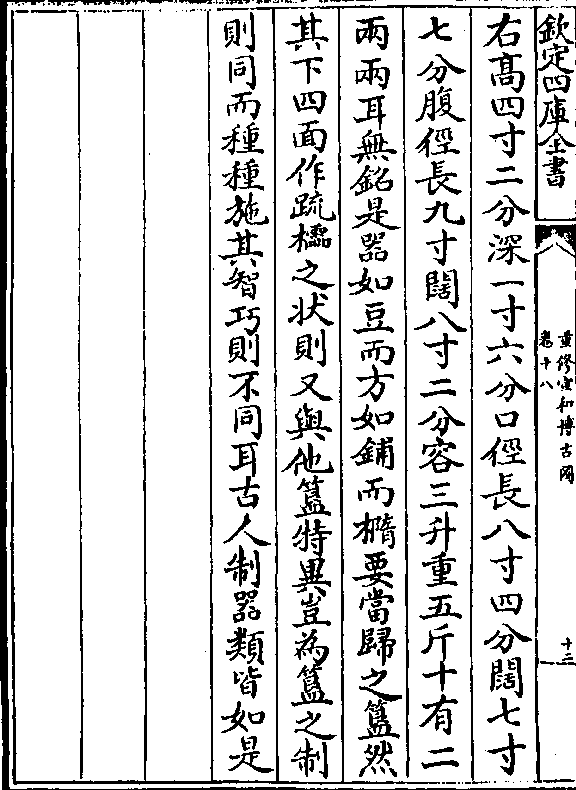 欽定四庫全書
重修宣和博古圖
卷十八
十三
右高四寸二分深一寸六分口徑長八寸四分闊七寸
七分腹徑長九寸闊八寸二分容三升重五斤十有二
兩兩耳無銘是器如豆而方如鋪而橢要當歸之簠然
其下四面作疏櫺之狀則又與他簠特異豈為簠之制
則同而種種施其智巧則不同耳古人制器類皆如是